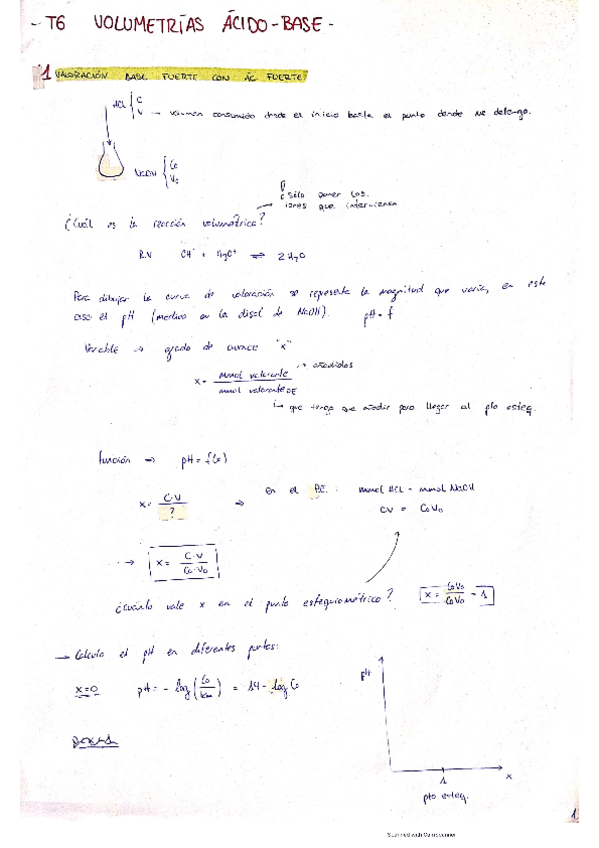 - T6 VOLUMETRÍAS ÁCIDO-BASE -
1 VALORACIÓN BASE FUERTE CON ÁC FUERTE
HCl { C
V → volumen consumido desde el inicio hasta el punto donde me detengo.
NaOH { Co
Vo
sólo poner los
iones que intervienen
¿Cuál es la reacción volumétrica?
R.V OH⁻ + H₃O⁺ ⇌ 2 H₂O
Para dibujar la curva de valoración se representa la magnitud que varía, en este
caso el pH (medido en la disol de NaOH). pH = f
Variable → grado de avance "x"
x = mmol valorante → añadidos
mmol valorante PE
↳ que tengo que añadir para llegar al pto esteq.
función → pH = f(x)
x = C·V / ? ⇒ en el P.E. : mmol HCl = mmol NaOH
CV = CoVo
→ x = C·V / Co·Vo
¿cuánto vale x en el punto estequiométrico? x = CoVo / CoVo = 1
→ Calculo el pH en diferentes puntos:
x=0 pH = - log (Co / ) = 14 - log Co
pH
1
x
pto esteq.
1
Scanned with CamScanner